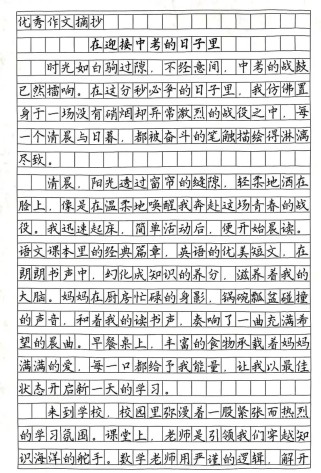 优秀作文摘抄
在迎接中考的日子里
时光如白驹过隙，不经意间，中考的战鼓
已然擂响。在这分秒必争的日子里，我仿佛置
身于一场没有硝烟却异常激烈的战役之中，每
一个清晨与日暮，都被奋斗的笔触描绘得淋漓
尽致。
清晨，阳光透过窗帘的缝隙，轻柔地洒在
脸上，像是在温柔地唤醒我奔赴这场青春的战
役。我迅速起床，简单活动后，便开始晨读。
语文课本里的经典篇章，英语的优美短文，在
朗朗书声中，幻化成知识的养分，滋养着我的
大脑。妈妈在厨房忙碌的身影，锅碗瓢盆碰撞
的声音，和着我的读书声，奏响了一曲充满希
望的晨曲。早餐桌上，丰富的食物承载着妈妈
满满的爱，每一口都给予我能量，让我以最佳
状态开启新一天的学习。
来到学校，校园里弥漫着一股紧张而热烈
的学习氛围。课堂上，老师是引领我们穿越知
识海洋的舵手。数学老师用严谨的逻辑，解开